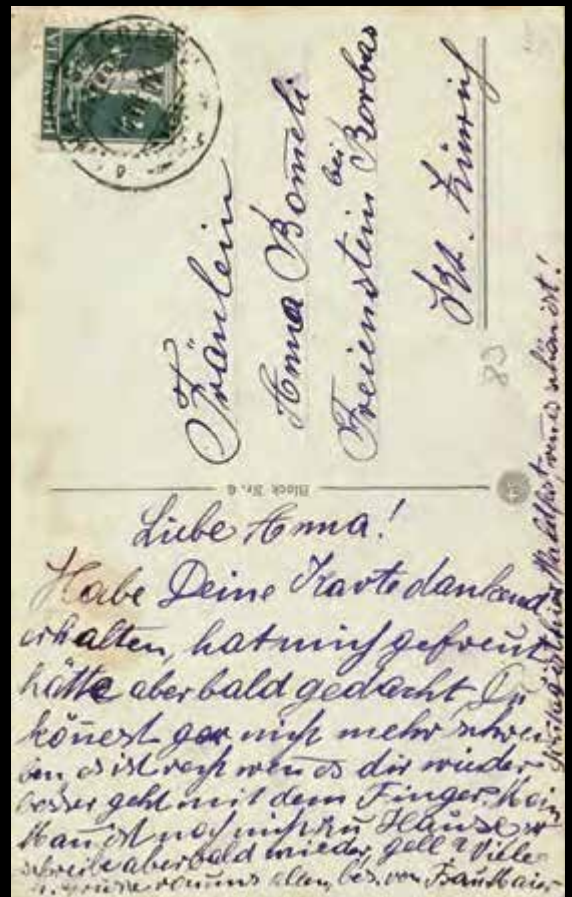 HELVETIA
Fräulein
Anna Bom̄eli
Freienstein bei Rorbas
Kt. Zürich
83
Block Nr. 6
Liebe Anna!
Habe Deine Karte dankend
erhalten, hat mich gefreut
hätte aber bald gedacht Du
kön̄est gar nicht mehr schrei-
ben es ist recht wen es dir wieder
besser geht mit dem Finger. Mein
Man ist noch nicht zu Hause
schreibe aber bald wieder, gell? Viele
h. Grüsse von uns allen, bes. von Frau Maier
Freitag ist hier Waldfest, wen es schön ist!